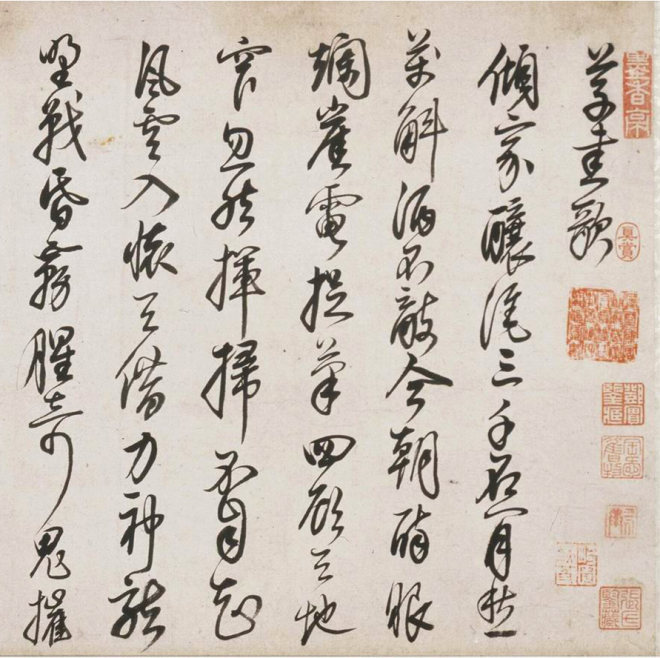 草書歌
傾家釀酒三千石閒愁
萬斛酒不敵今朝醉眼
爛巖電提筆四顧天地
窄忽然揮掃不自知
風雲入懷天借力神龍
野戰昏霧腥奇鬼摧
真賞